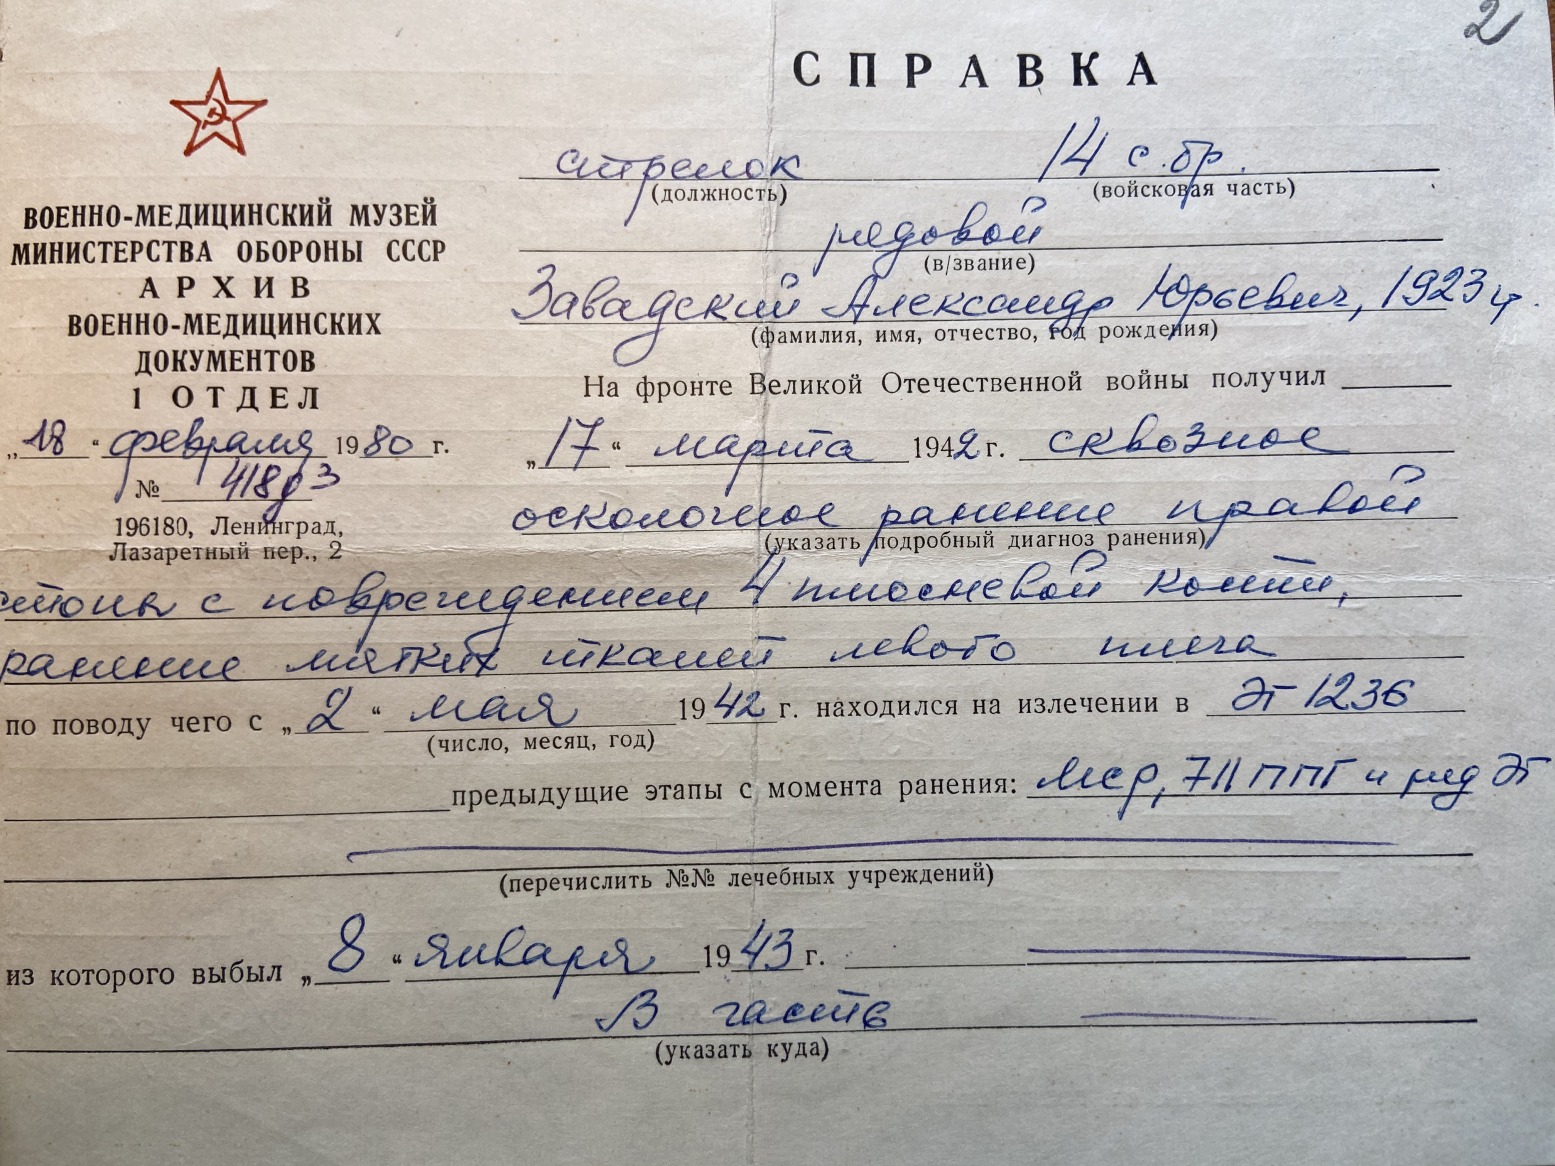 2
СПРАВКА
стрелок 14 с.бр.
(должность) (войсковая часть)
рядовой
(в/звание)
Завадский Александр Юрьевич, 1923 г.
(фамилия, имя, отчество, год рождения)
ВОЕННО-МЕДИЦИНСКИЙ МУЗЕЙ
МИНИСТЕРСТВА ОБОРОНЫ СССР
АРХИВ
ВОЕННО-МЕДИЦИНСКИХ
ДОКУМЕНТОВ
1 ОТДЕЛ
„18“ февраля 1980 г.
№ 418
196180, Ленинград,
Лазаретный пер., 2
На фронте Великой Отечественной войны получил
„17“ марта 1942 г. сквозное
осколочное ранение правой
(указать подробный диагноз ранения)
стопы с повреждением 4 плюсневой кости,
ранение мягких тканей левого плеча
по поводу чего с „2“ мая 1942 г. находился на излечении в ЭГ 1236
(число, месяц, год)
предыдущие этапы с момента ранения: Мср, 711 ППГ и ряд ЭГ
(перечислить №№ лечебных учреждений)
из которого выбыл „8“ января 1943 г.
В часть
(указать куда)